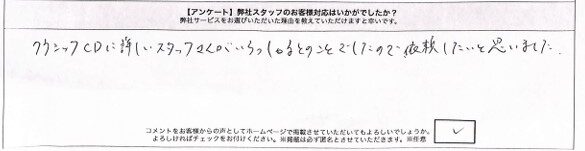 【アンケート】弊社スタッフのお客様対応はいかがでしたか？
弊社サービスをお選びいただいた理由を教えていただけますと幸いです。
クラシックCDに詳しいスタッフさんがいらっしゃるとのことでしたので依頼したいと思いました。
コメントをお客様からの声としてホームページで掲載させていただいてもよろしいでしょうか。
よろしければチェックをお付けください。※掲載は必ず匿名とさせていただきます。※任意
✓